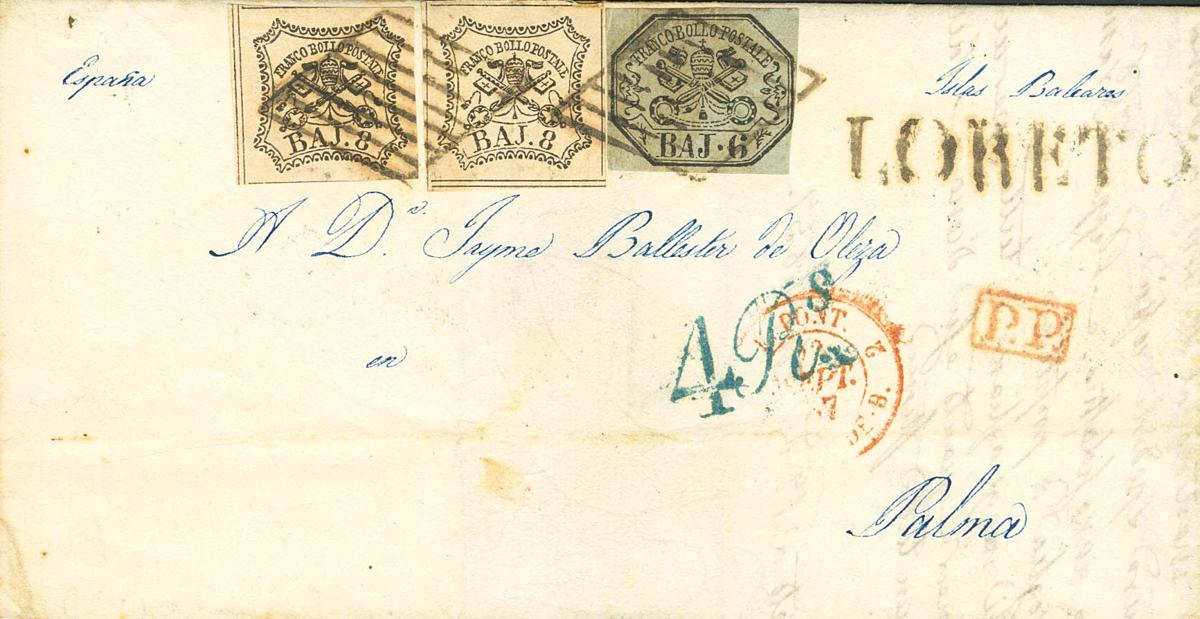 FRANCO BOLLO POSTALE
BAJ. 8
FRANCO BOLLO POSTALE
BAJ. 8
FRANCO BOLLO POSTALE
BAJ. 6
España
Islas Baleares
LORETO
A Dn. Jayme Ballester de Oleza
4 Rs
PONT.
2
SEPT.
DE-B.
P.P.
en
Palma